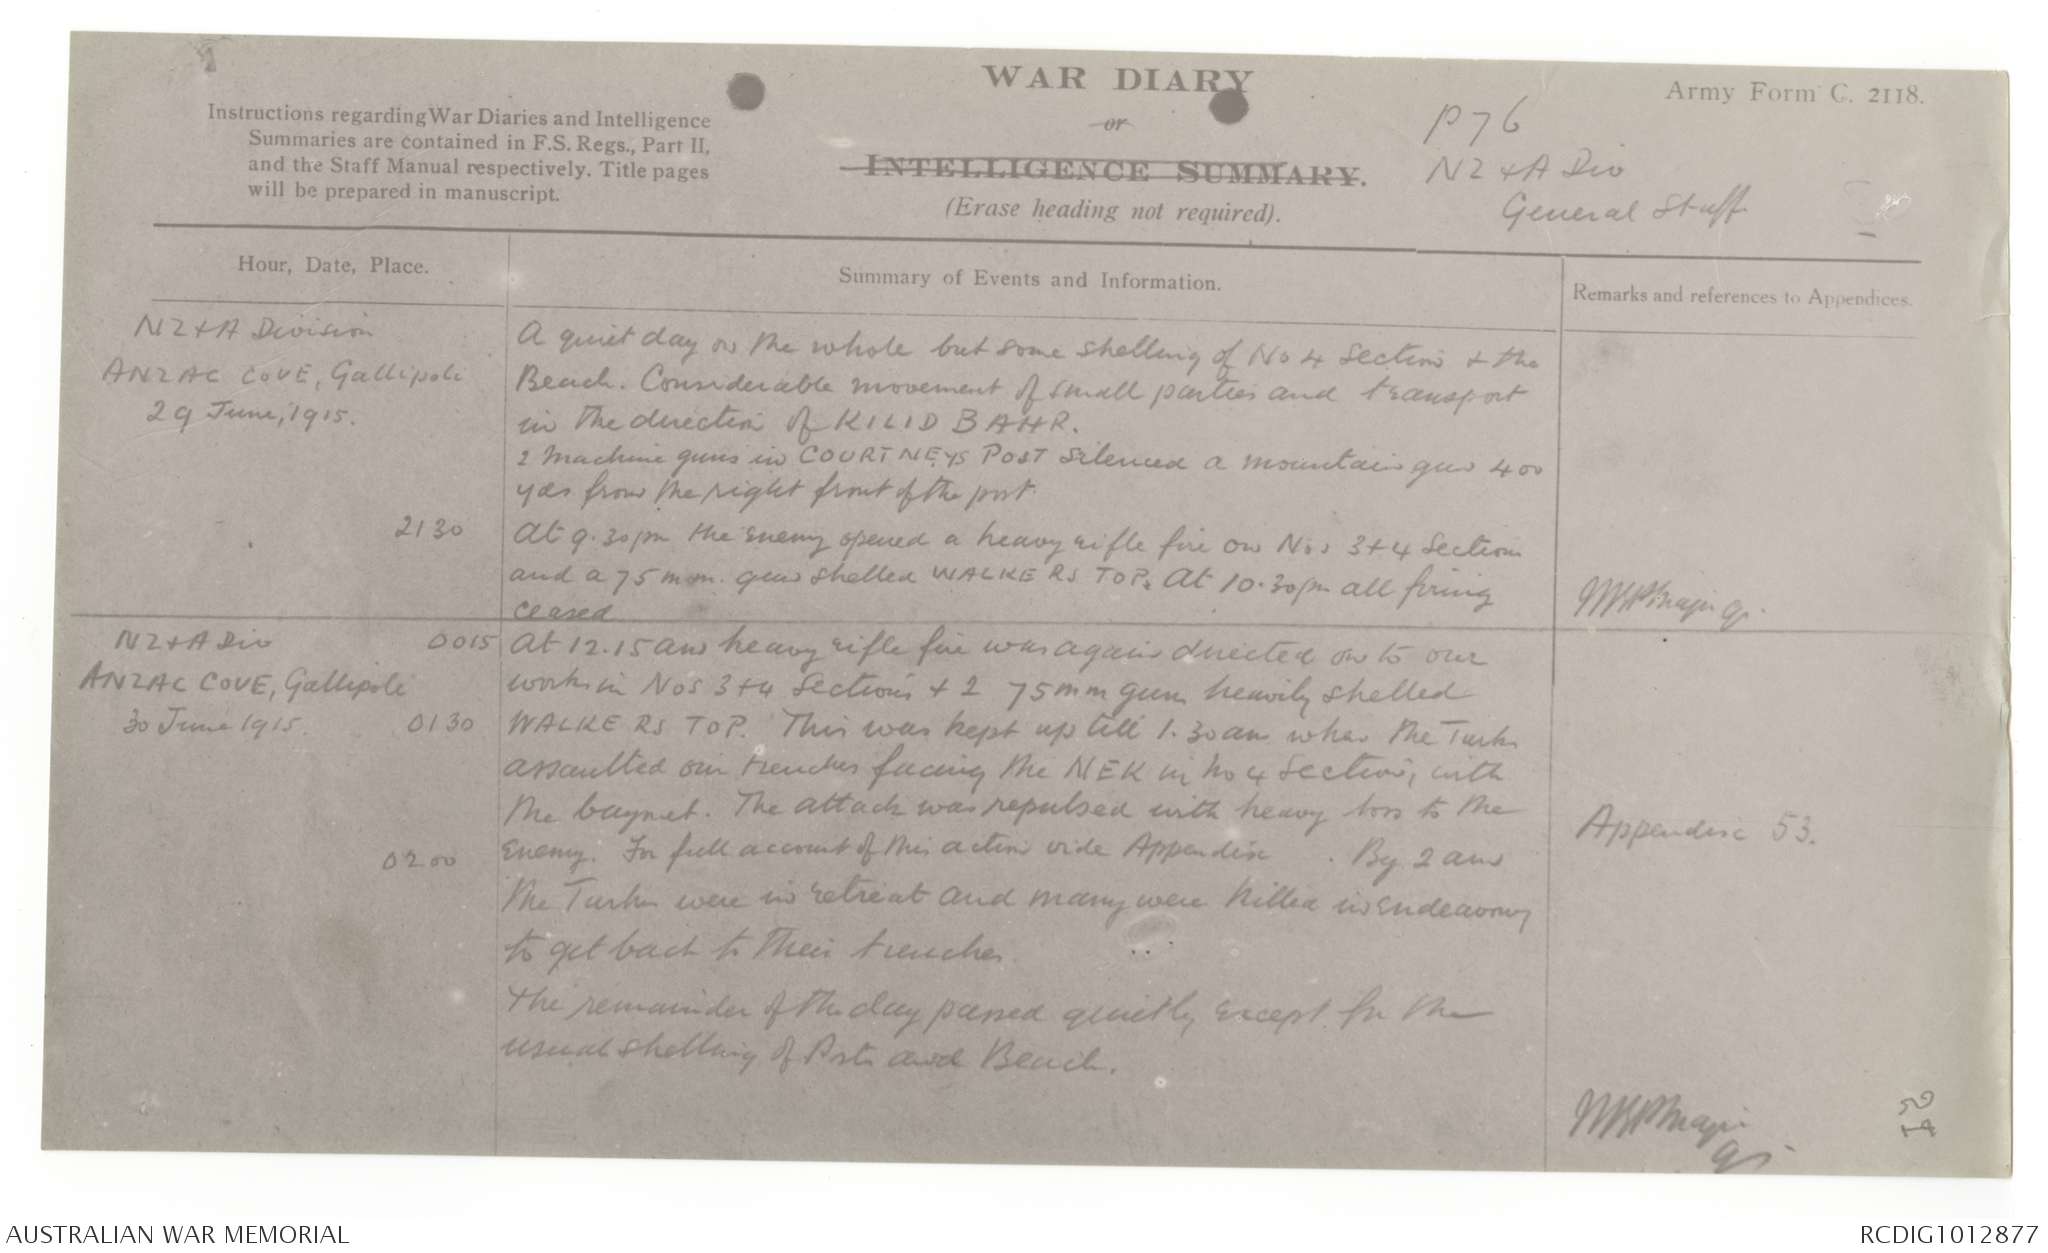 WAR DIARY
or
INTELLIGENCE SUMMARY.
(Erase heading not required).
Instructions regarding War Diaries and Intelligence
Summaries are contained in F.S. Regs., Part II,
and the Staff Manual respectively. Title pages
will be prepared in manuscript.
Army Form C. 2118.
P76
NZ + A Div
General Staff
Hour, Date, Place.
Summary of Events and Information.
Remarks and references to Appendices.
NZ + A Division
ANZAC COVE, Gallipoli
29 June, 1915.
A quiet day on the whole but some shelling of No 4 Section + the
Beach. Considerable movement of small parties and transport
in the direction of KILID BAHR.
2 Machine guns in COURTNEYS POST silenced a mountain gun 400
yds from the right front of the post.
2130
At 9.30pm the enemy opened a heavy rifle fire on Nos 3+4 Sections
and a 75 m.m. gun shelled WALKERS TOP. At 10.30pm all firing
ceased
NZ + A Div
0015
At 12.15 am heavy rifle fire was again directed on to our
ANZAC COVE, Gallipoli
works in Nos 3+4 Sections + 2 75mm guns heavily shelled
30 June 1915.
0130
WALKERS TOP. This was kept up till 1.30am when the Turks
assaulted our trenches facing the NEK in No 4 Section, with
the baynet. The attack was repulsed with heavy loss to the
Appendix 53.
0200
enemy. For full account of this action vide Appendix . By 2 am
the Turks were in retreat and many were killed in endeavoury
to get back to their trenches.
The remainder of the day passed quietly except for the
usual shelling of Posts and Beach.
AUSTRALIAN WAR MEMORIAL
RCDIG1012877